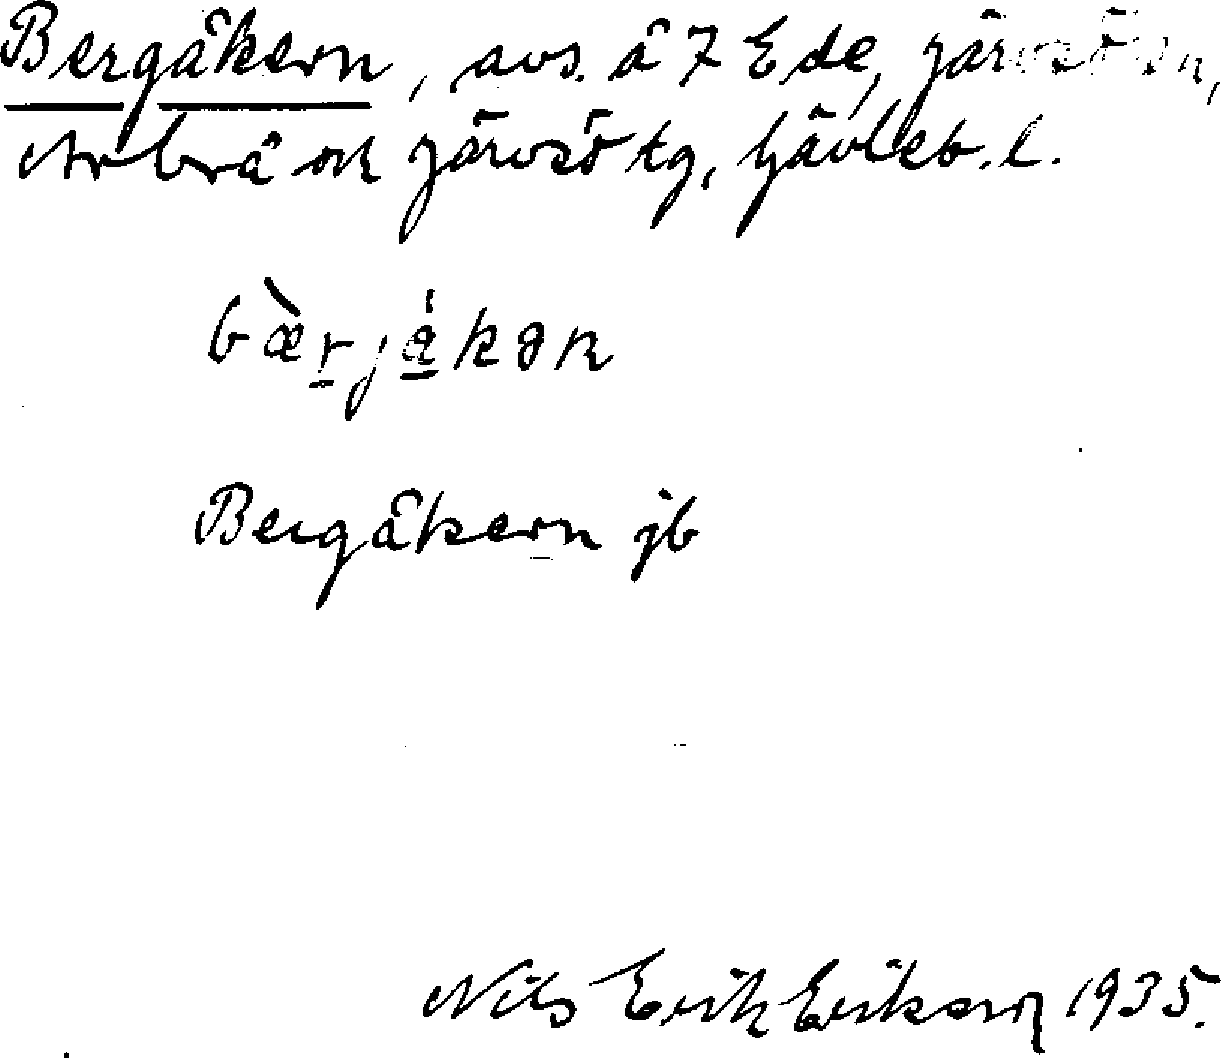 Bergåkern, avs. å 7 Ede, Järvsö sn,
Arbrå och Järvsö tg, Gävleb. l.
bæ̀rjåkən
Bergåkern jb
Nils Erik Erikson 1935.